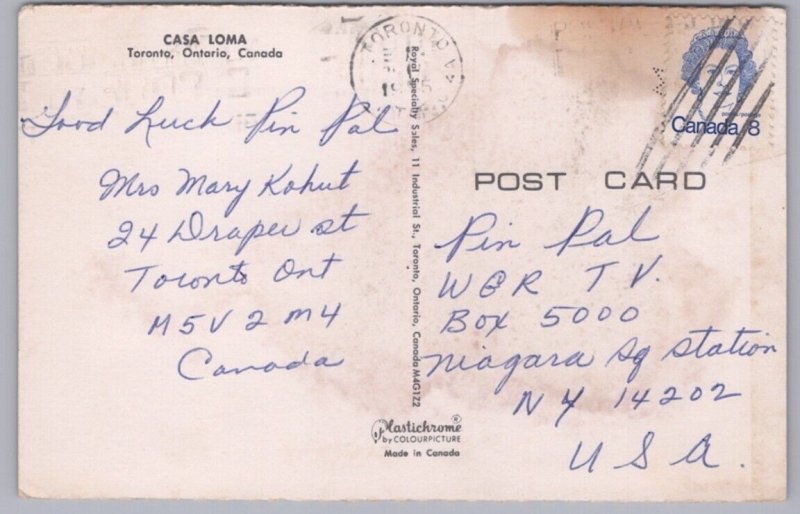 CASA LOMA
Toronto, Ontario, Canada
Good Luck Pin Pal
Mrs Mary Kohut
24 Draper st
Toronto Ont
M5V 2M4
Canada
TORONTO
Royal Specialty Sales, 11 Industrial St., Toronto, Ontario, Canada M4G1Z2
Plastichrome®
by COLOURPICTURE
Made in Canada
Canada 8
POST CARD
Pin Pal
WGR T.V.
Box 5000
Niagara Sq Station
NY 14202
USA.